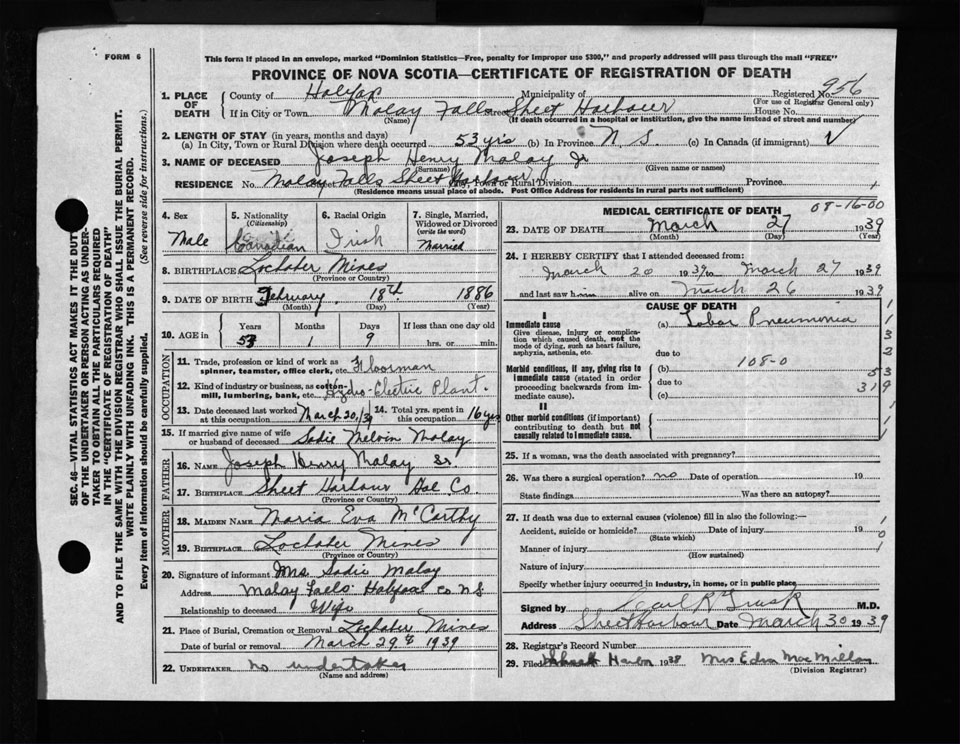 FORM 6
This form if placed in an envelope, marked "Dominion Statistics—Free, penalty for improper use $300," and properly addressed will pass through the mail "FREE"
PROVINCE OF NOVA SCOTIA—CERTIFICATE OF REGISTRATION OF DEATH
1. PLACE OF DEATH
County of Halifax Municipality of Registered No. 956
(For use of Registrar General only)
If in City or Town Malay Falls Street Sheet Harbour House No.
(Name) (If death occurred in a hospital or institution, give the name instead of street and number)
2. LENGTH OF STAY (in years, months and days)
(a) In City, Town or Rural Division where death occurred 53 yrs (b) In Province N. S. (c) In Canada (if immigrant) √
3. NAME OF DECEASED Joseph Henry Malay Jr
(Surname) (Given name or names)
RESIDENCE No. Malay Falls Street Sheet Harbour City, Town or Rural Division Province
(Residence means usual place of abode. Post Office Address for residents in rural parts not sufficient)
4. Sex
Male
5. Nationality
(Citizenship)
Canadian
6. Racial Origin
Irish
7. Single, Married, Widowed or Divorced
(write the word)
Married
8. BIRTHPLACE Lochaber Mines
(Province or Country)
9. DATE OF BIRTH February 18th 1886
(Month) (Day) (Year)
10. AGE in
Years Months Days If less than one day old
53 1 9 hrs. or min.
OCCUPATION
11. Trade, profession or kind of work as spinner, teamster, office clerk, etc. Floorman
12. Kind of industry or business, as cotton-mill, lumbering, bank, etc. Hydro-Electric Plant.
13. Date deceased last worked at this occupation March 20/39
14. Total yrs. spent in this occupation 16 yrs
15. If married give name of wife or husband of deceased Sadie Melvin Malay
FATHER
16. NAME Joseph Henry Malay Sr
17. BIRTHPLACE Sheet Harbour Hal Co.
(Province or Country)
MOTHER
18. MAIDEN NAME Maria Eva McCarthy
19. BIRTHPLACE Lochaber Mines
(Province or Country)
20. Signature of informant Mrs. Sadie Malay
Address Malay Falls Halifax Co N.S
Relationship to deceased Wife
21. Place of Burial, Cremation or Removal Lochaber Mines
Date of burial or removal March 29th 1939
22. UNDERTAKER no undertaker
(Name and address)
MEDICAL CERTIFICATE OF DEATH 08-16-00
23. DATE OF DEATH March 27 1939
(Month) (Day) (Year)
24. I HEREBY CERTIFY that I attended deceased from:
March 20 1939 to March 27 1939
and last saw him alive on March 26 1939
CAUSE OF DEATH
I
Immediate cause
Give disease, injury or complication which caused death, not the mode of dying, such as heart failure, asphyxia, asthenia, etc.
(a) Lobar Pneumonia
due to
Morbid conditions, if any, giving rise to immediate cause (stated in order proceeding backwards from immediate cause).
(b) 108-0
due to
(c)
1
1
3
2
53
319
II
Other morbid conditions (if important) contributing to death but not causally related to immediate cause.
25. If a woman, was the death associated with pregnancy?
26. Was there a surgical operation? no Date of operation 19
State findings Was there an autopsy?
27. If death was due to external causes (violence) fill in also the following:—
Accident, suicide or homicide? Date of injury 19
(State which)
Manner of injury
(How sustained)
Nature of injury
Specify whether injury occurred in industry, in home, or in public place
Signed by Carl R Trask M.D.
Address Sheet Harbour Date March 30 1939
28. Registrar's Record Number
29. Filed 1938 Mrs Edna MacMillan
(Division Registrar)
SEC. 46—VITAL STATISTICS ACT MAKES IT THE DUTY OF THE UNDERTAKER OR PERSON ACTING AS UNDERTAKER TO OBTAIN ALL THE PARTICULARS REQUIRED IN THE "CERTIFICATE OF REGISTRATION OF DEATH" AND TO FILE THE SAME WITH THE DIVISION REGISTRAR WHO SHALL ISSUE THE BURIAL PERMIT.
WRITE PLAINLY WITH UNFADING INK. THIS IS A PERMANENT RECORD.
Every item of information should be carefully supplied. (See reverse side for instructions.)